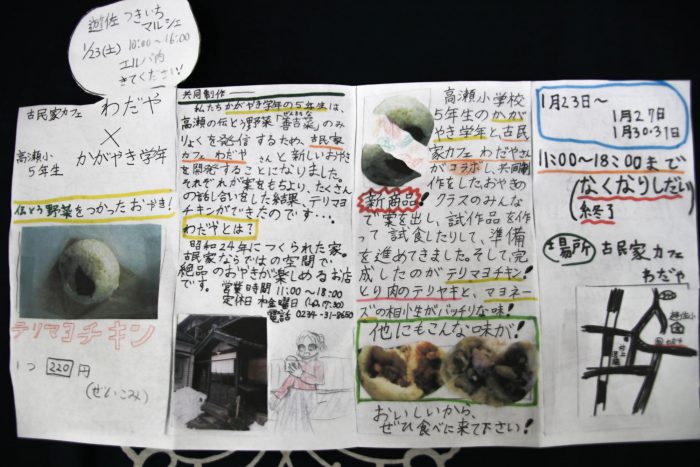 遊佐 つきいち
マルシェ
1/23(土) 10:00～16:00
エルパ内
きてください!
古民家カフェ わだや
×
高瀬小
5年生 かがやき学年
伝とう野菜をつかったおやき!
テリマヨチキン
1つ 220円
(ぜいこみ)
共同制作
私たちかがやき学年の5年生は、
高瀬の伝とう野菜「善吉菜」のみ
りょくを発信するため、古民家
カフェ わだや さんと新しいおやき
を開発することになりました。
それぞれが案をもちより、たくさん
の話し合いをした結果、テリマヨ
チキンができたのです・・・。
わだやとは?
昭和24年につくられた家。
古民家ならではの空間で、
絶品のおやきが楽しめるお店
です。 営業時間 11:00～18:00
定休日 水金曜日
電話 0234-31-8650
高瀬小学校
5年生のかが
やき学年と、古民
家カフェ わだやさん
がコラボし、共同制
作をした、おやきの
新商品! クラスのみんな
で案を出し、試作品を作
って試食したりして、準備
を進めました。そして、完
成したのがテリマヨチキン!
とり肉のテリヤキと、マヨネー
ズの相小生がバッチリな味!
他にもこんな味が!
おいしいから、
ぜひ食べに来て下さい!
1月23日～
1月27日
1月30・31日
11:00～18:00まで
(なくなりしだい
終了)
場所 古民家カフェ
わだや